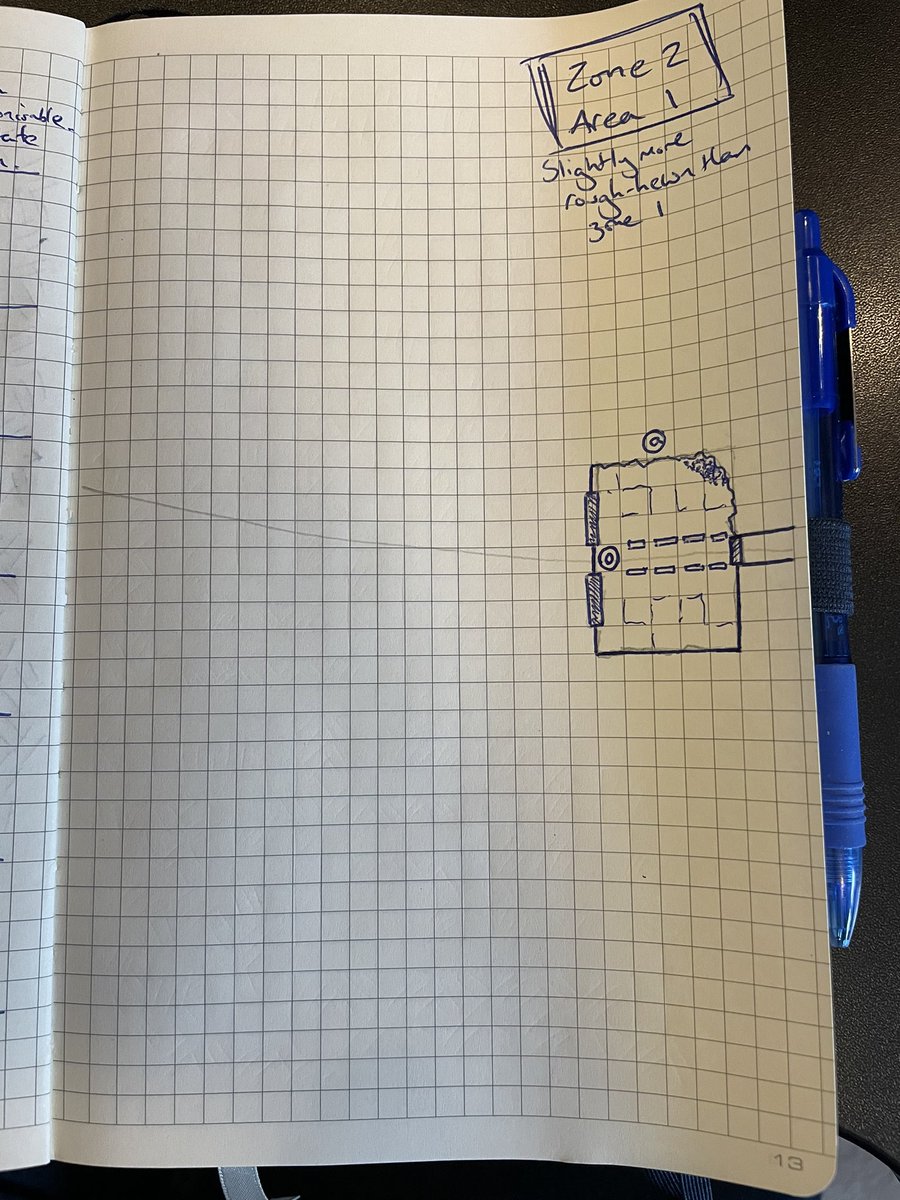 Zone 2
Area 1
Slightly more
rough-hewn than
zone 1
a
13